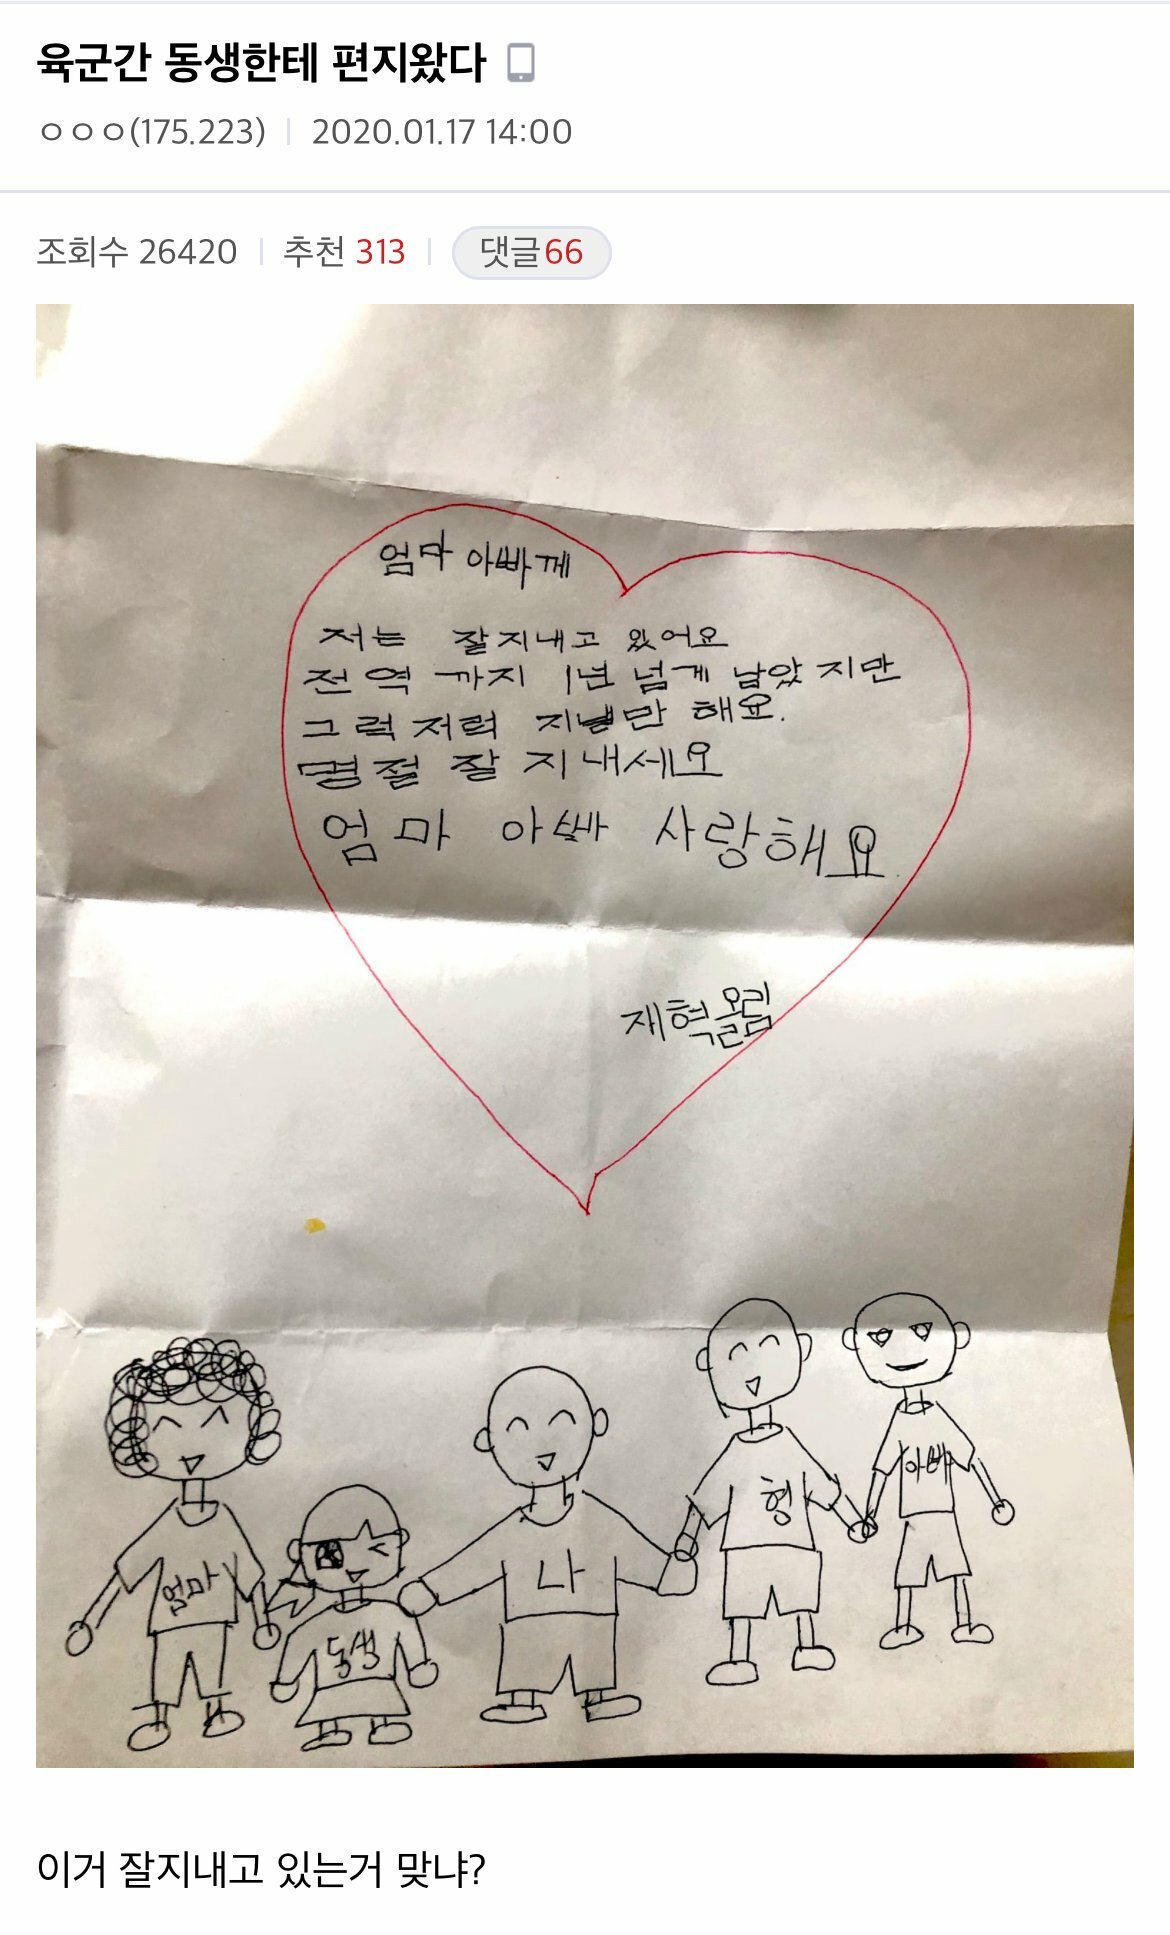 육군간 동생한테 편지왔다
ㅇㅇㅇ(175.223) 2020.01.17 14:00
조회수 26420 추천 313 댓글66
엄마 아빠께
저는 잘지내고 있어요
전역 까지 1년 넘게 남았지만
그럭저럭 지낼만 해요.
명절 잘 지내세요
엄마 아빠 사랑해요
재혁올림
엄마
동생
나
형
아빠
이거 잘지내고 있는거 맞냐?